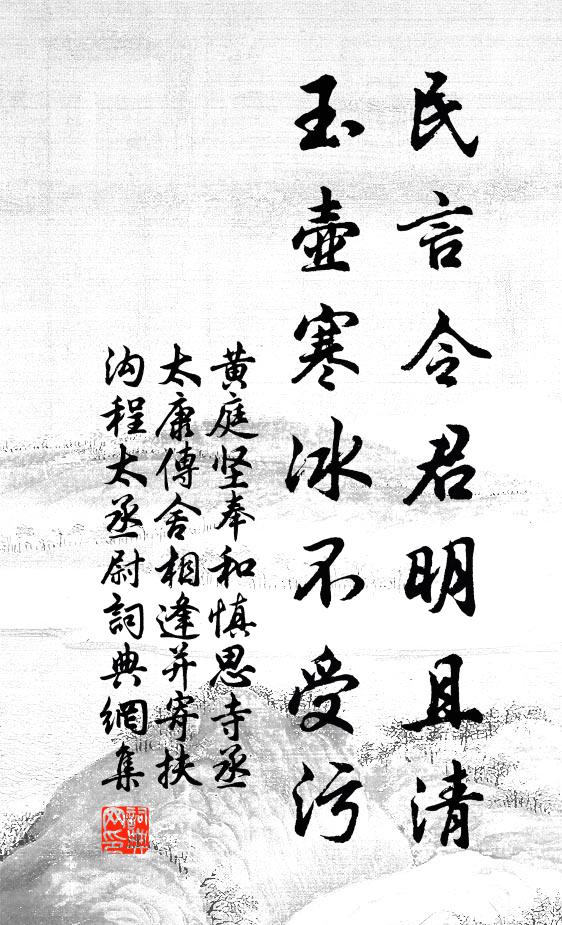 民言令君明且清
玉壺寒冰不受污
黃庭坚奉和慎思寺丞
太康傳舍相逢并寄扶
沟程太丞尉詞典網集